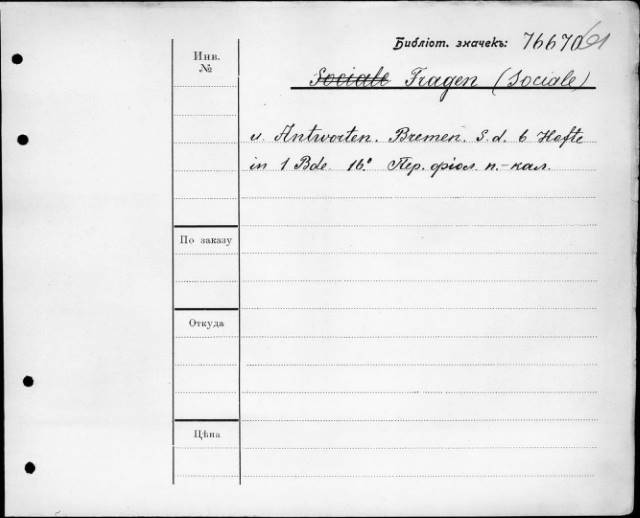 Библіот. значекъ: 76670
Инв.
№
Sociale Fragen (Sociale)
u. Antworten. Bremen. S. d. 6 Hefte
in 1 Bde. 16.° Пер. фіол. п.-кал.
По заказу
Откуда
Цѣна